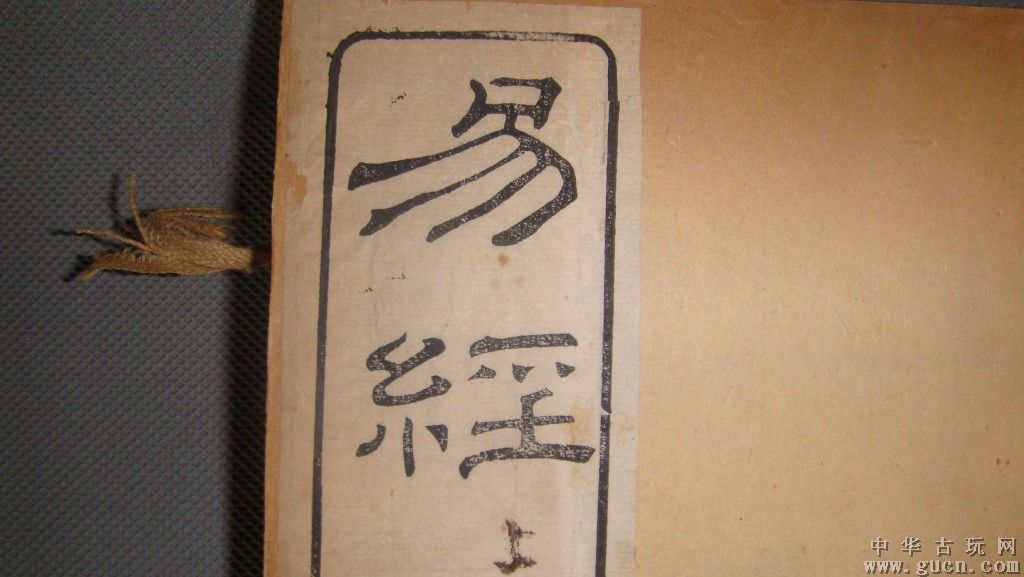 易
經
上
中华古玩网
www.gucn.com